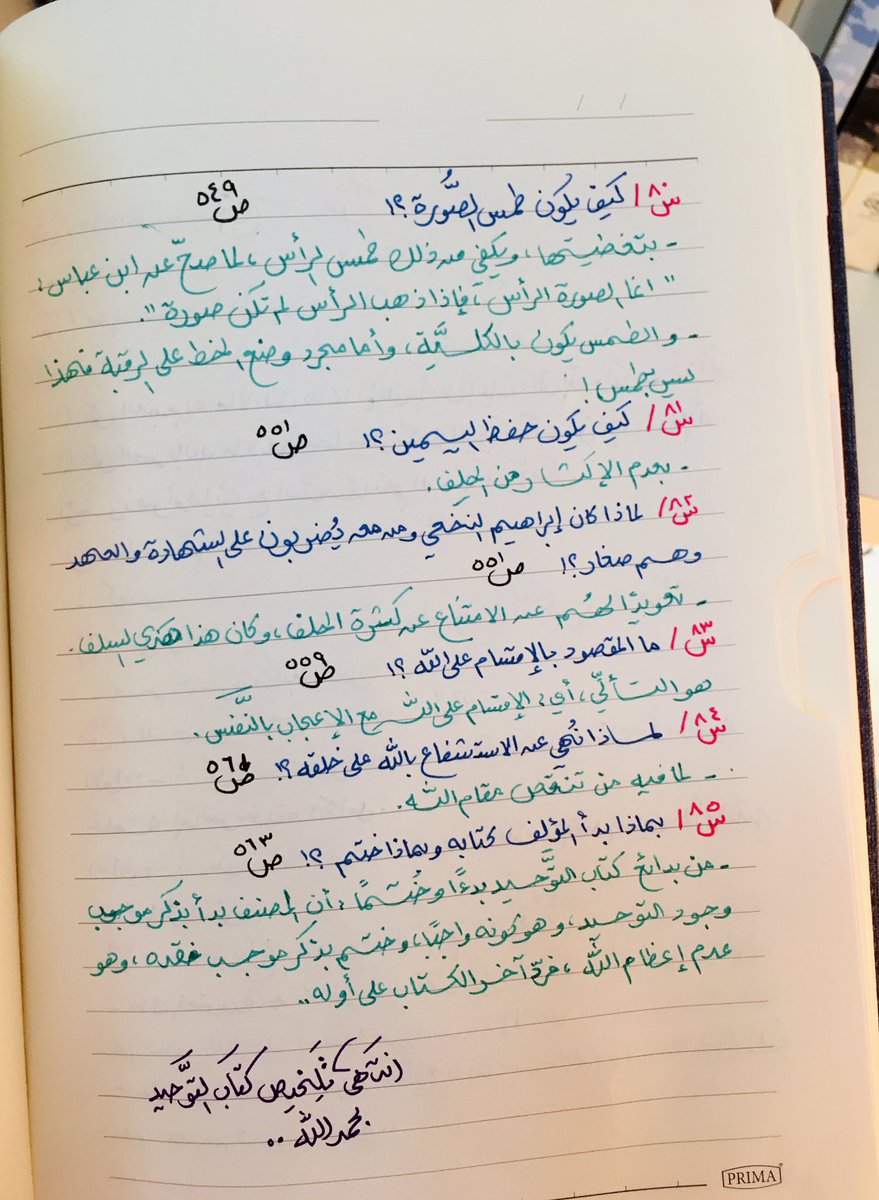 / /
س٨٠/ كيف يكون طمس الصُّورة؟! ص٥٤٩
- بتغطيتها، ويكفي من ذلك طمس الرأس، لما صحّ عن ابن عباس:
"انما الصورة الرأس، فإذا ذهب الرأس لم تكن صورة".
- والطمس يكون بالكليَّة، وأما مجرد وضع الخط على الرقبة فهذا
ليس بطمس!
س٨١/ كيف يكون حفظ اليمين؟! ص٥٥١
- بعدم الإكثار من الحلِف.
س٨٢/ لماذا كان إبراهيم النخعي ومن معه يُضربون على الشهادة والعهد
وهم صغار؟! ص٥٥١
- تعويدًا لهُم عن الامتناع عن كثرة الحلف، وكان هذا هَدْي السلف.
س٨٣/ ما المقصود بالإقسام على اللّٰه؟! ص٥٥٩
هو التألّي، أي: الإقسام على اللّٰه مع الإعجاب بالنَّفس.
س٨٤/ لماذا نُهي عن الاستشفاع باللّٰه على خلقه؟! ص٥٦١
- لما فيه من تنقّص مقام اللّٰه.
س٨٥/ بماذا بدأ المؤلف كتابه وبماذا ختم؟! ص٥٦٣
- من بدائع كتاب التوَّحيد بدءًا وخُتمًا: أن المصنف بدأ بذكر موجب
وجود التوحيد، وهو كونه واجبًا، وختم بذكر موجب فقده، وهو
عدم إعظام اللّٰه، فردّ آخر الكتاب على أوله..
انتَهَىٰ تلخِيص كتَاب التوَّحيد
بحمد اللّٰه..
PRIMA